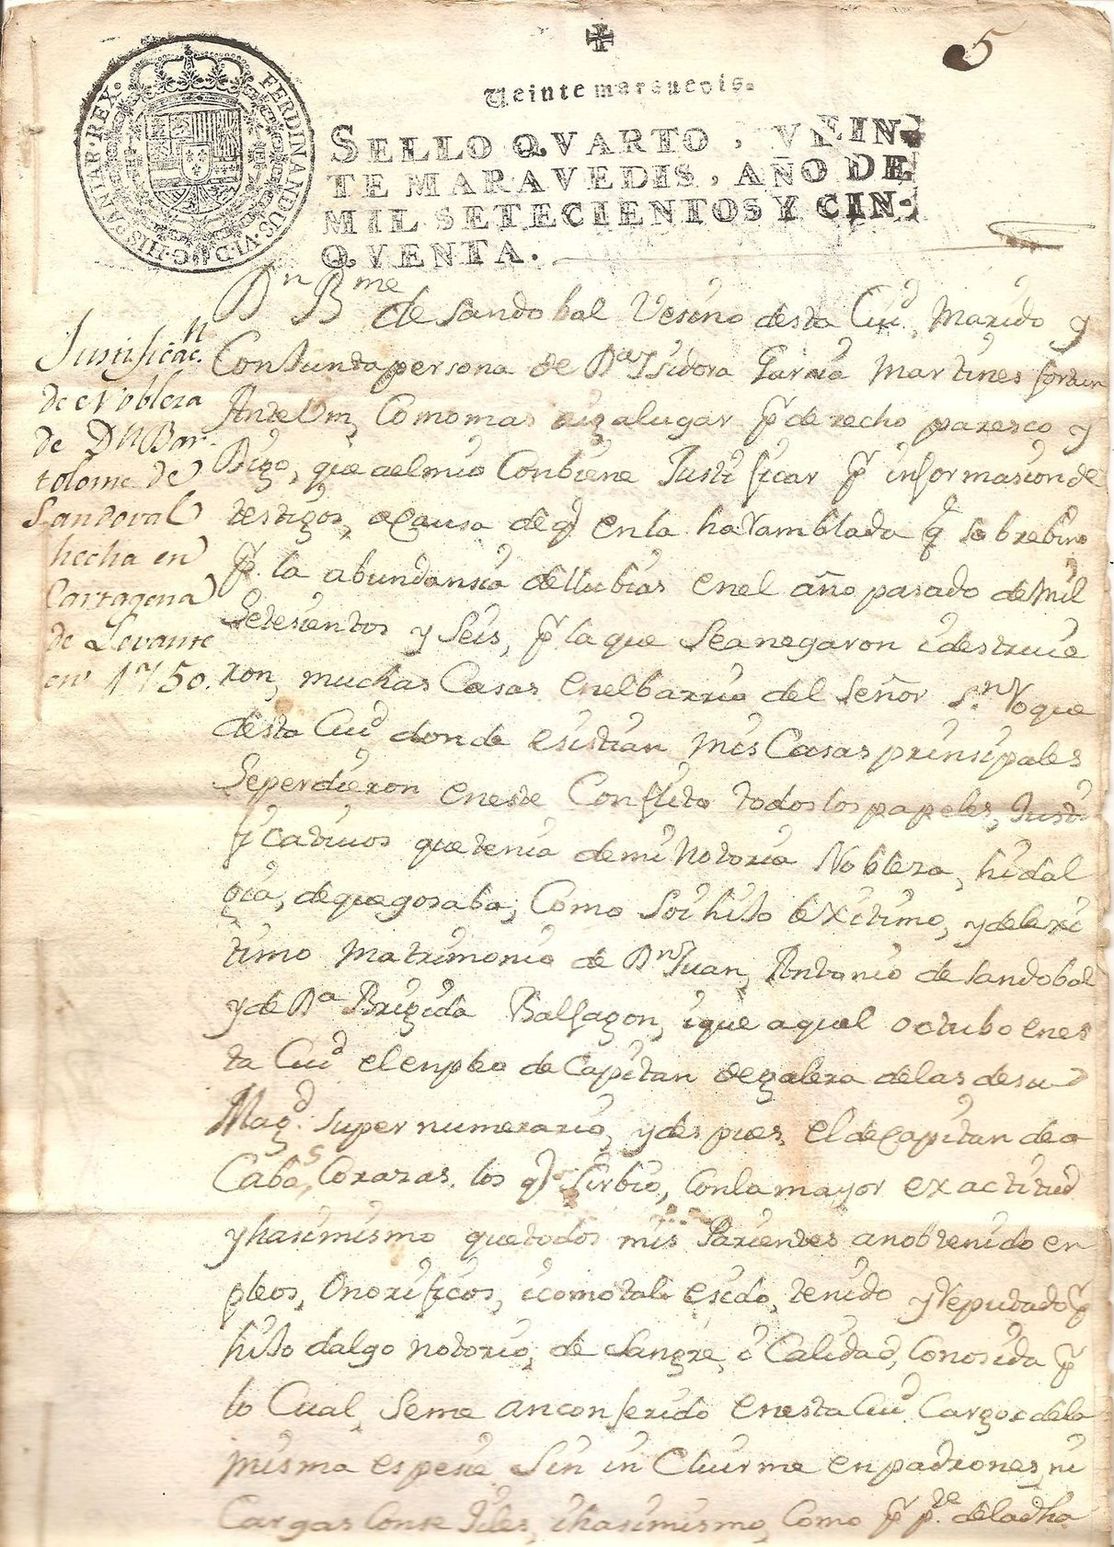 5
Veinte maravedis.
SELLO QVARTO, VEIN-
TE MARAVEDIS, AÑO DE
MIL SETECIENTOS Y CIN-
QVENTA.
FERDINANDUS·VI·D·G·HISPANIAR·REX·
Justificac.n
de Nobleza
de Dn Bar-
tolome de
Sandoval
hecha en
Cartagena
de Levante
en 1750.
Dn Bme de Sandobal Vesino desta Ciud, Marido y
Conjunta persona de Da Isidora Garsia Martines fortun
Ante Vm, Como mas aiga lugar pr derecho paresco y
Digo, que aelmio Conbiene Justificar pr informasion de
testigos, acausa de q en la haRamblada q sobrebino
pr la abundansia dellubias en el año pasado de Mil
Setesientos y Seis, pr la que Seanegaron idestruie
ron, muchas Casas enelbarrio del Señor Sn Roque
desta Ciud donde esistian mis Casas prinsipales
Seperdieron eneste Conflito todos los papeles, Justi
ficatiuos que tenia demi Notoria Nobleza, hidal
gia, deque gosaba, Como Soi hijo lexitimo, y de lexi
timo Matrimonio de Dn Juan, Antonio de Sandobal
y de Da Brigida Balfagon, ique aquel octubo enes
ta Ciud el enpleo de Capitan de galera delas de su
Magd. Supernumerario, y despues, el de Capitan de a
Cabos, Corazas. los q Sirbio, Conlamayor exactitud
y hasimismo que todos mis Parientes anobtenido en
pleos, Onorificos, icomotal esido, tenido y Reputado pr
hijo dalgo notorio, de Sangre, i Calidad, Conosida pr
lo Cual, Seme anconferido enesta Ciud Cargos dela
misma espesie Sin inCluirme enpadrones, ni
Cargas Consejiles, ihasimismo, Como pr pte deladha